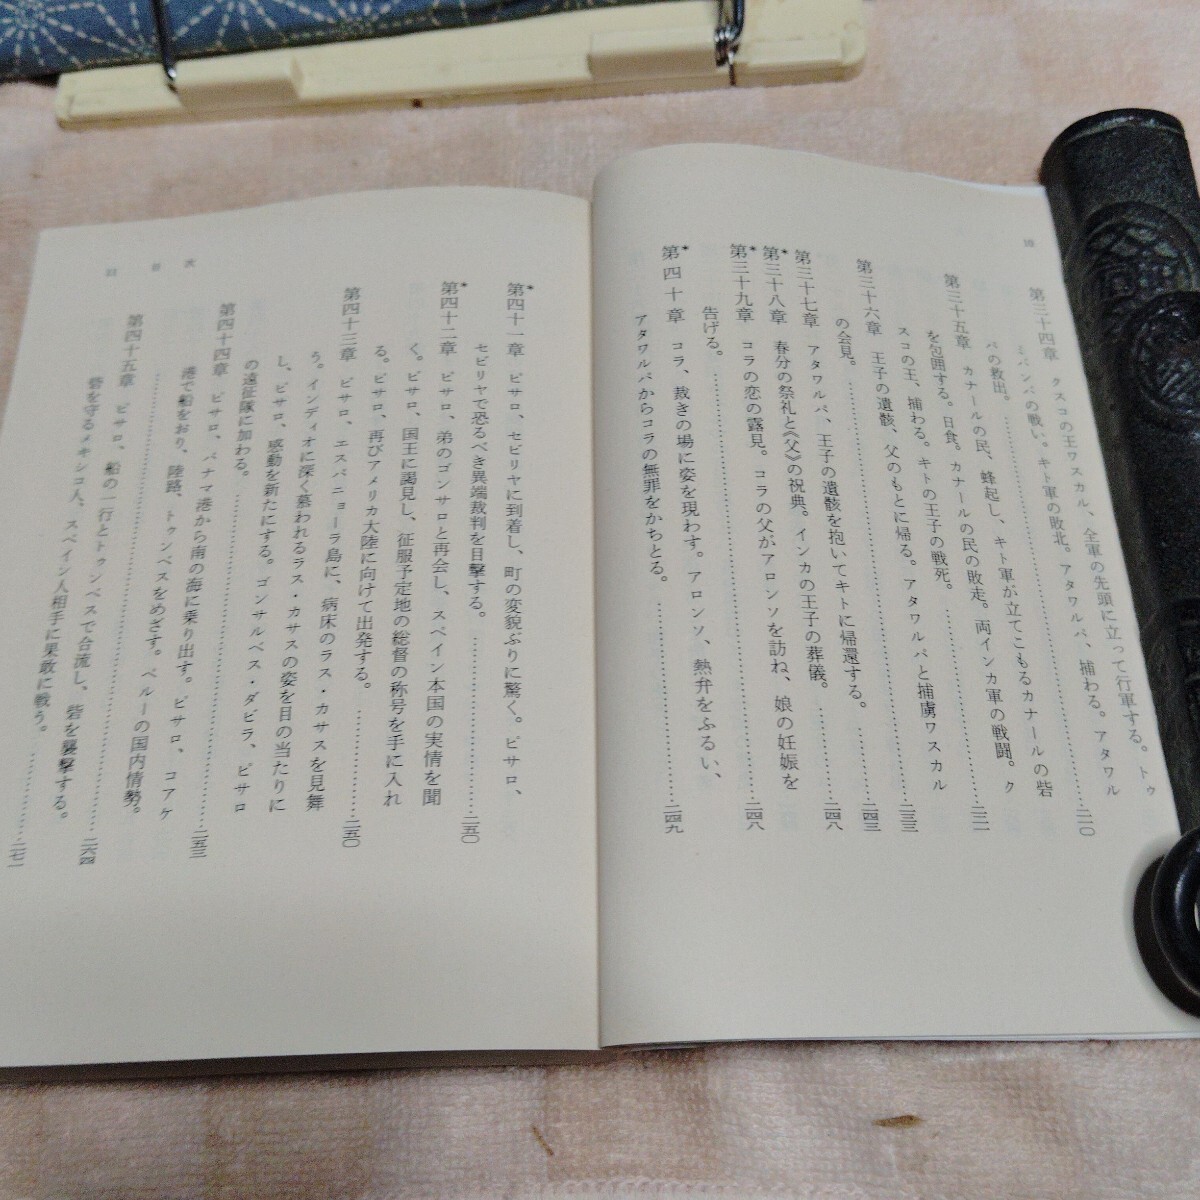 10
第三十四章 クスコの王ワスカル、全軍の先頭に立って行軍する。トゥ
ミバンバの戦い。キト軍の敗北。アタワルパ、捕わる。アタワル
パの救出。……二一〇
第三十五章 カナールの民、蜂起し、キト軍が立てこもるカナールの砦
を包囲する。日食。カナールの民の敗走。両インカ軍の戦闘。ク
スコの王、捕わる。キトの王子の戦死。……二二一
第三十六章 王子の遺骸、父のもとに帰る。アタワルパと捕虜ワスカル
の会見。……二三三
第三十七章 アタワルパ、王子の遺骸を抱いてキトに帰還する。……二四三
*第三十八章 春分の祭礼と《父》の祝典。インカの王子の葬儀。……二四八
*第三十九章 コラの恋の露見。コラの父がアロンソを訪ね、娘の妊娠を
告げる。……二四八
*第四十章 コラ、裁きの場に姿を現わす。アロンソ、熱弁をふるい、
アタワルパからコラの無罪をかちとる。……二四九
*第四十一章 ピサロ、セビリヤに到着し、町の変貌ぶりに驚く。ピサロ、
セビリヤで恐るべき異端裁判を目撃する。……二五〇
*第四十二章 ピサロ、弟のゴンサロと再会し、スペイン本国の実情を聞
く。ピサロ、国王に謁見し、征服予定地の総督の称号を手に入れ
る。ピサロ、再びアメリカ大陸に向けて出発する。……二五〇
第四十三章 ピサロ、エスパニョーラ島に、病床のラス・カサスを見舞
う。インディオに深く慕われるラス・カサスの姿を目の当たりに
し、ピサロ、感動を新たにする。ゴンサルベス・ダビラ、ピサロ
の遠征隊に加わる。……二五三
第四十四章 ピサロ、パナマ港から南の海に乗り出す。ピサロ、コアケ
港で船をおり、陸路、トゥンベスをめざす。ペルーの国内情勢。
……二六四
第四十五章 ピサロ、船の一行とトゥンベスで合流し、砦を襲撃する。
砦を守るメキシコ人、スペイン人相手に果敢に戦う。……二七一
目次
11